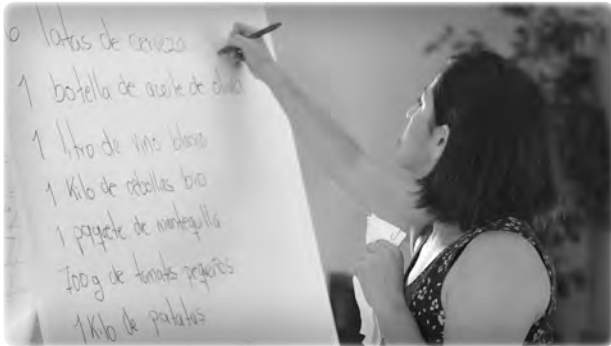 6 latas de cerveza
1 botella de aceite de oliva
1 litro de vino blanco
1 Kilo de cebollas bio
1 paquete de mantequilla
700g de tomates pequeños
1 Kilo de patatas